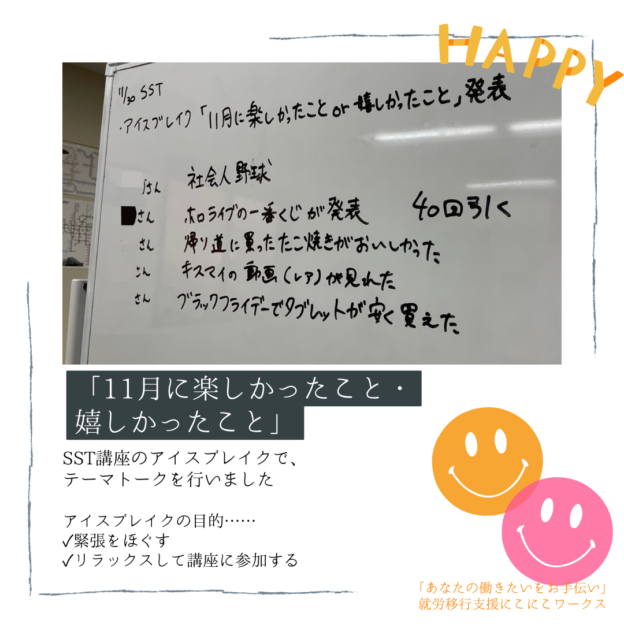 HAPPY
11/30 SST
・アイスブレイク「11月に楽しかったこと or 嬉しかったこと」発表
さん 社会人野球
さん ホロライブの一番くじが発表 40回引く
さん 帰り道に買ったたこ焼きがおいしかった
さん キスマイの動画(レア)が見れた
さん ブラックフライデーでタブレットが安く買えた
「11月に楽しかったこと・
嬉しかったこと」
SST講座のアイスブレイクで、
テーマトークを行いました
アイスブレイクの目的……
✓緊張をほぐす
✓リラックスして講座に参加する
「あなたの働きたいをお手伝い」
就労移行支援にこにこワークス